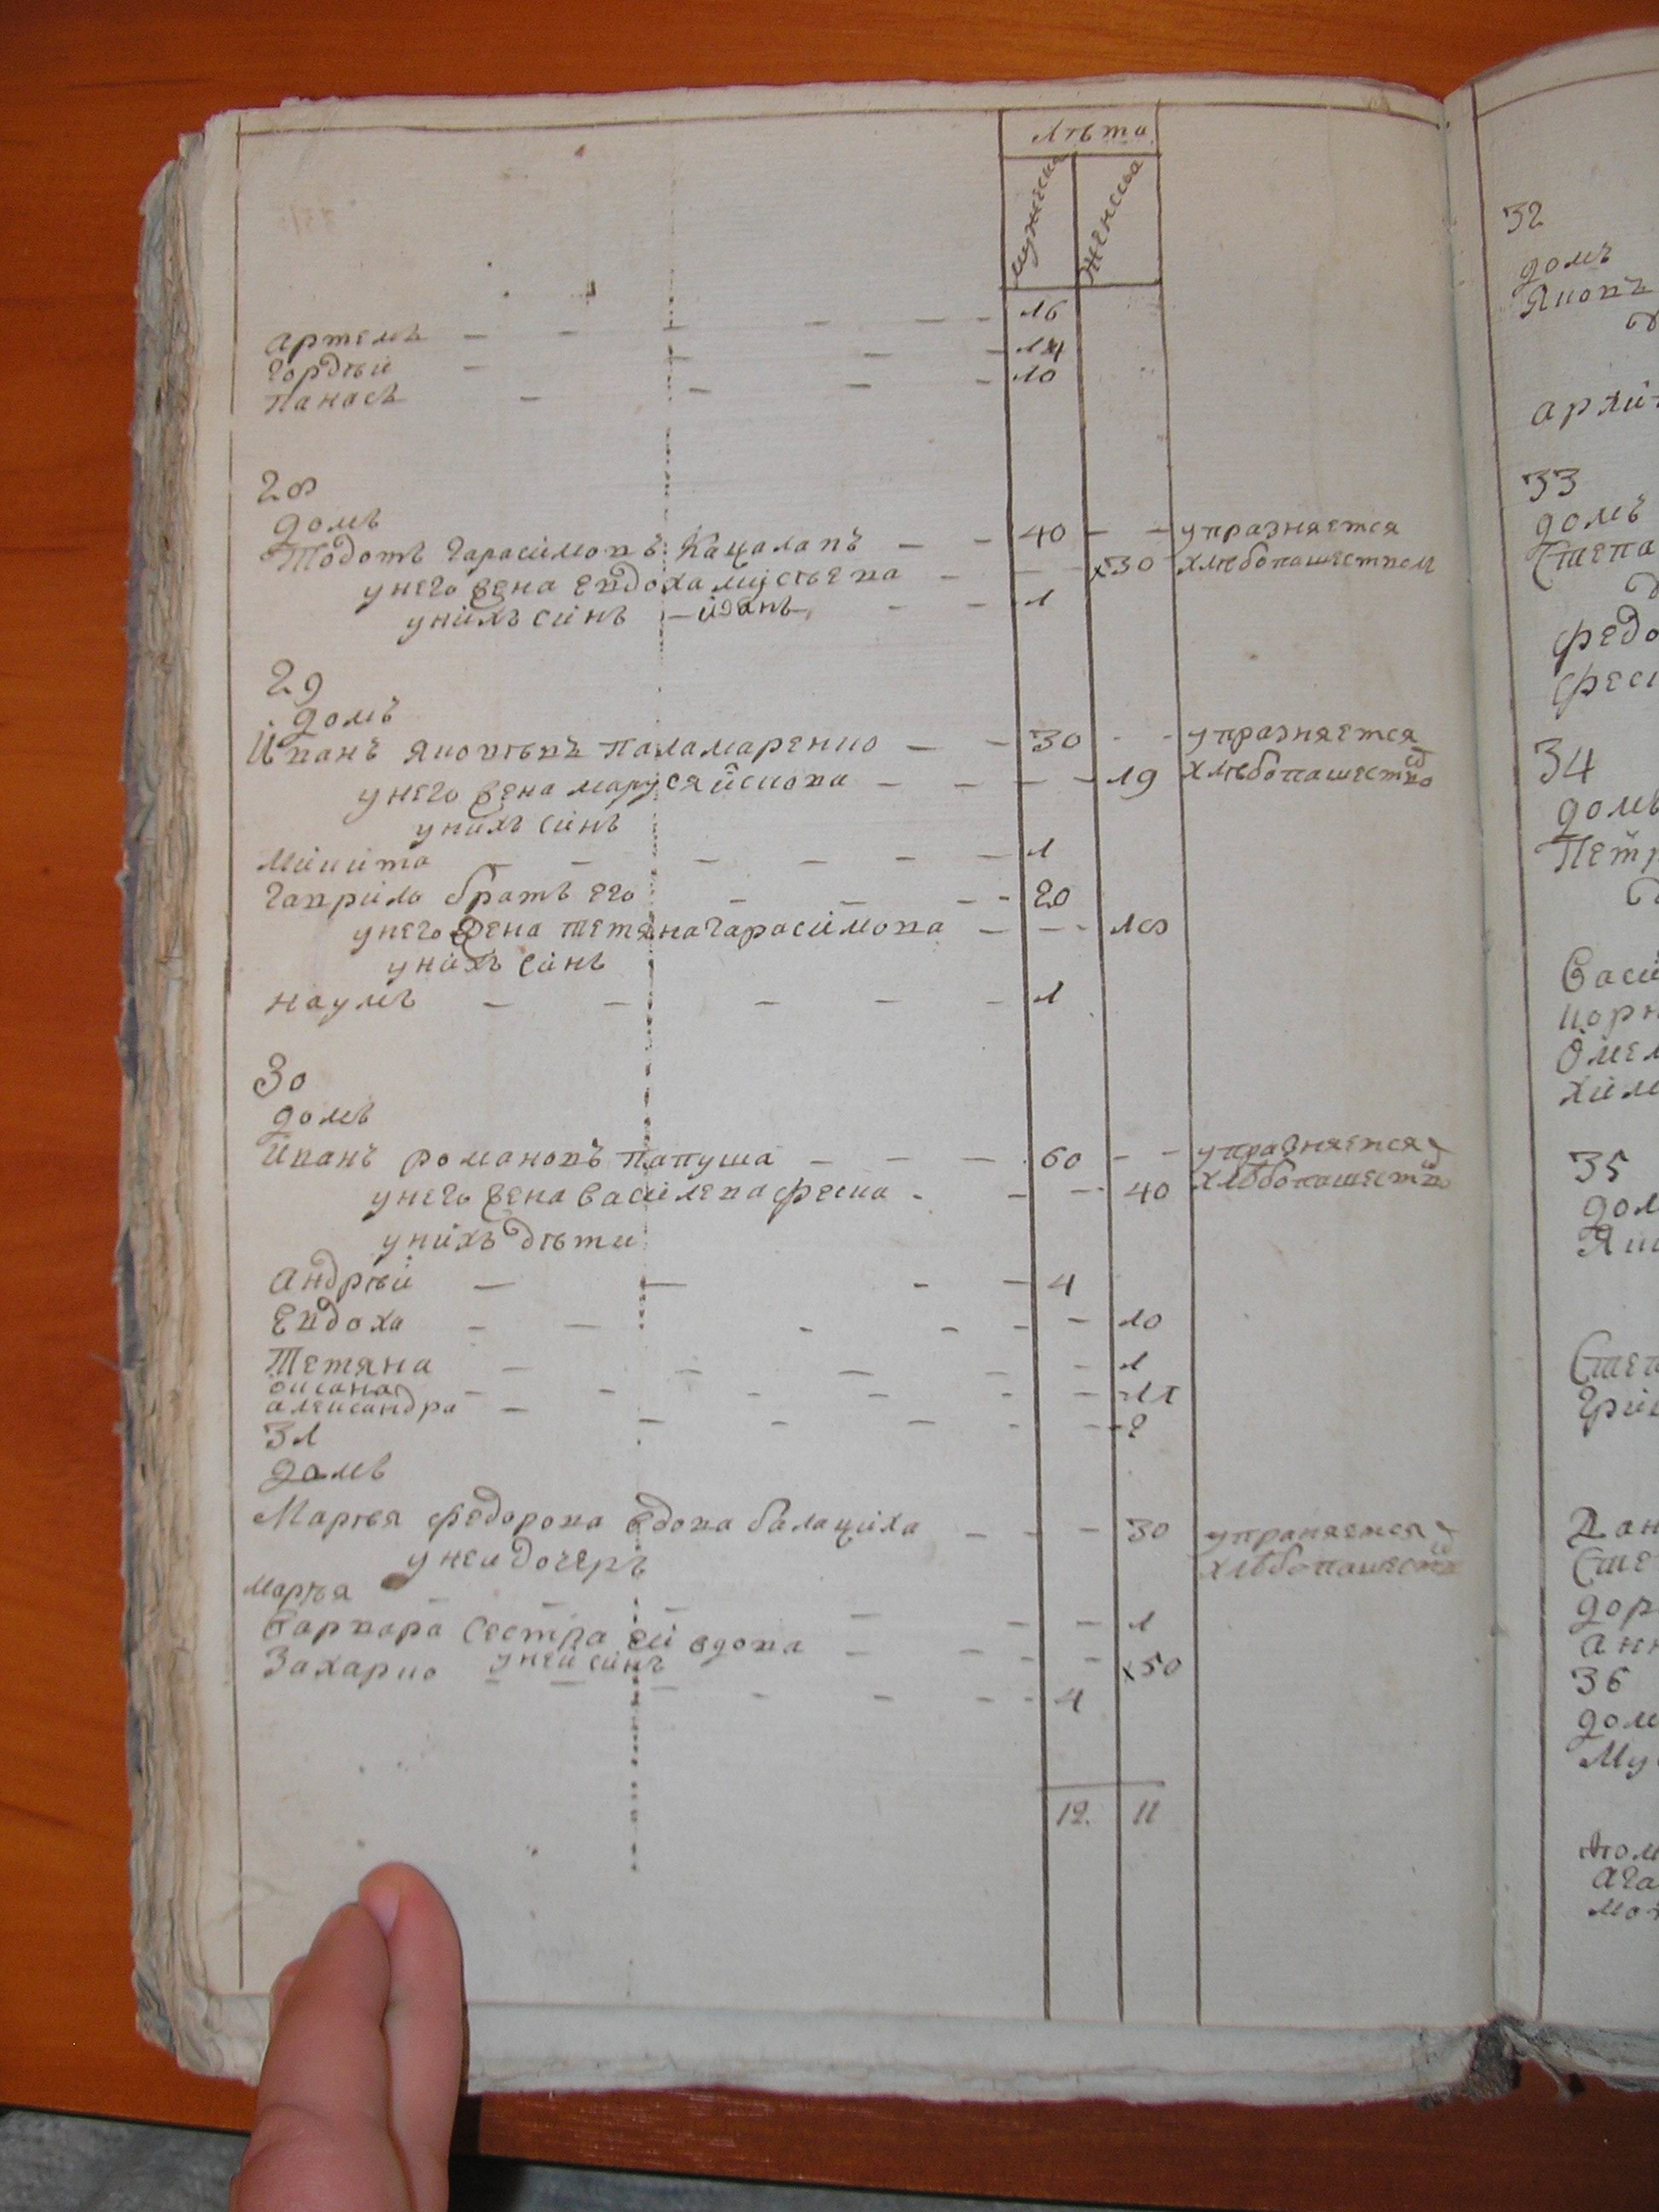 лѣта
мужеска
женска
артемъ — — — — — — 16
гордѣй — — — — 14
панасъ — — — — 10
28
домъ
Тодотъ Гарасимовъ Кацалапъ — — 40 — — упразняется
унего жена Евдоха — — — 30 хлѣбопашеством
унихъ синъ — іванъ — — — 1
29
домъ
Иванъ Яковлевъ Паламаренко — — 30 - - упразняется
унего жена маруся — — — — 19 хлѣбопашество
унихъ синъ
Микита — — — — — — 1
Гаврило братъ его — — — - 20
унего жена тетяна Гарасимова — — - 18
унихъ синъ
наумъ — — — — — 1
30
домъ
Иванъ романовъ папуша — — — 60 — - упразняется
унего жена Василева феска - - — 40 хлѣбопашеств
унихъ дѣти
андрѣй — — - — 4
Евдоха - — - - - - 10
Тетяна — — — — - 1
оксана — - - - - - 11
александра — — - — - - 2
31
домъ
Марѣя федорова вдова балациха — — — 30
унеи дочеръ хлѣбопашеств
марѣя — — — — — — 1
Варвара сестра ей вдова — — — 50
унеи синъ
Захарко — — — - - - - 4
12. 11
32
домъ
Яковъ
33
домъ
Степа
федо
34
домъ
Петр
Васи
корн
Омел
хим
35
дом
Яки
Степ
Гри
Дан
Сте
дор
анн
36
дом
Му
ага